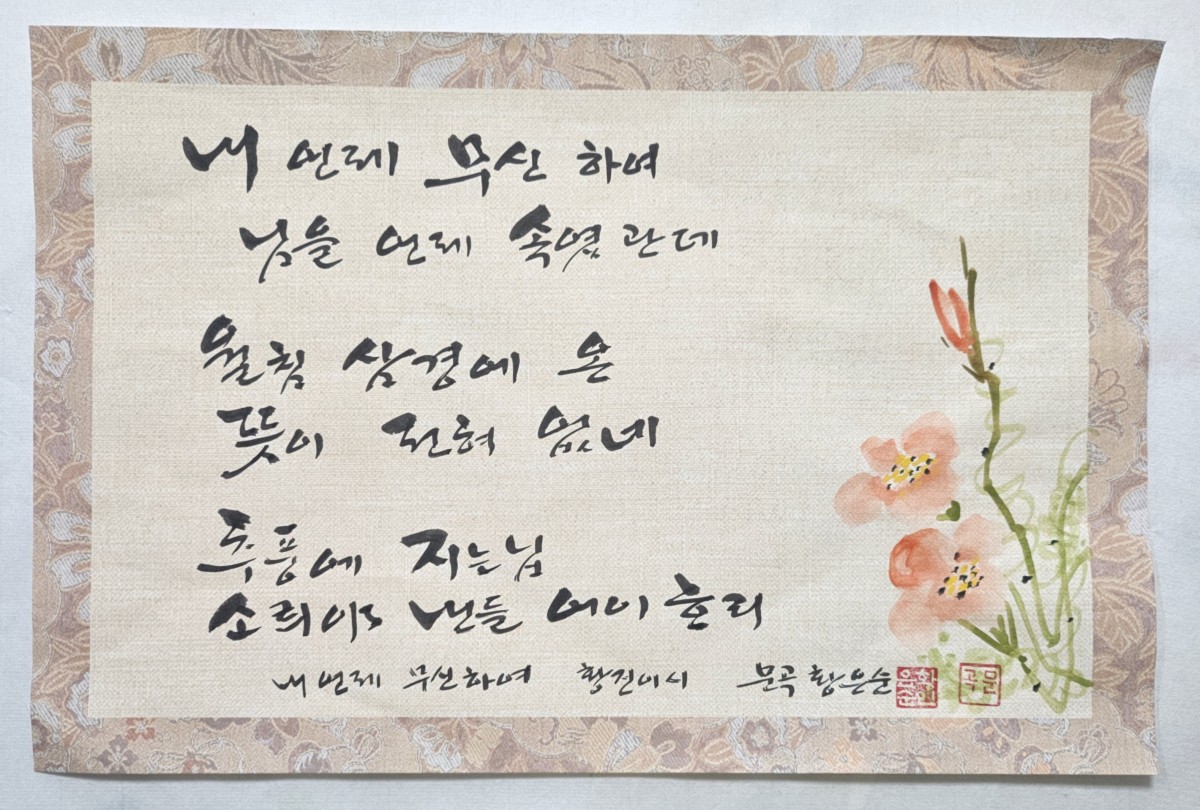 내 언제 무신 하여
님을 언제 속엿관데
월침 삼경에 온
뜻이 전혀 없네
추풍에 지는 닙
소릐야 낸들 어이 흐리
내 언제 무신하여 황진이시 문곡 황은순
문곡